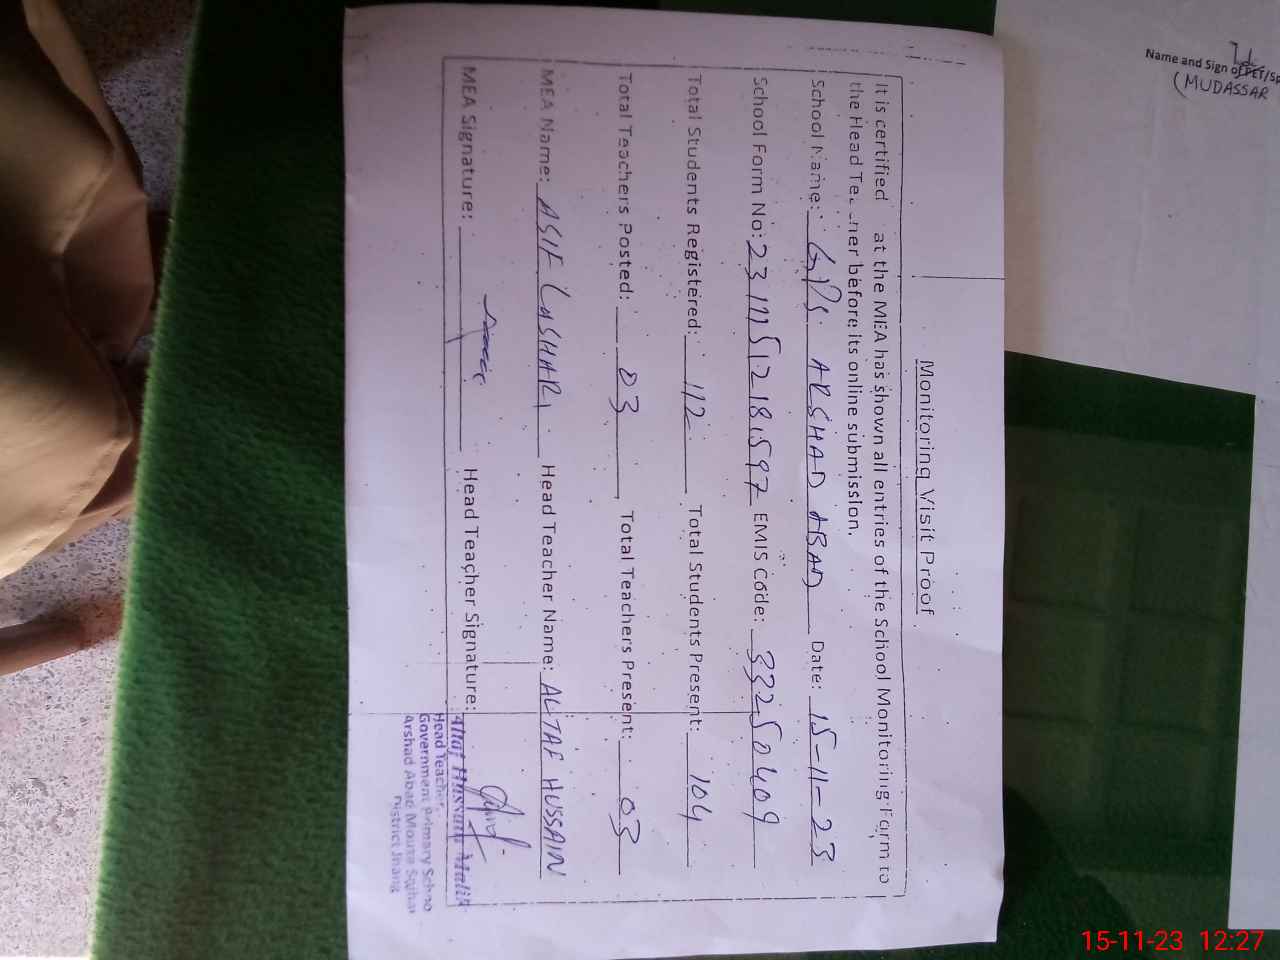 Monitoring Visit Proof
It is certified at the MEA has shown all entries of the School Monitoring Form to
the Head Te. .her before its online submission.
School Name: GPS ARSHAD ABAD Date: 15-11-23
School Form No: EMIS Code: 33250409
Total Students Registered: 112 Total Students Present: 104
Total Teachers Posted: 03 Total Teachers Present: 03
MEA Name: ASIF LASHARI Head Teacher Name: ALTAF HUSSAIN
MEA Signature: Head Teacher Signature:
Altaf Hussain Malik
Head Teacher
Government Primary Schoo
Arshad Abad Mouza
District Jhang
Name and Sign of PET/Sp
(MUDASSAR
15-11-23 12:27